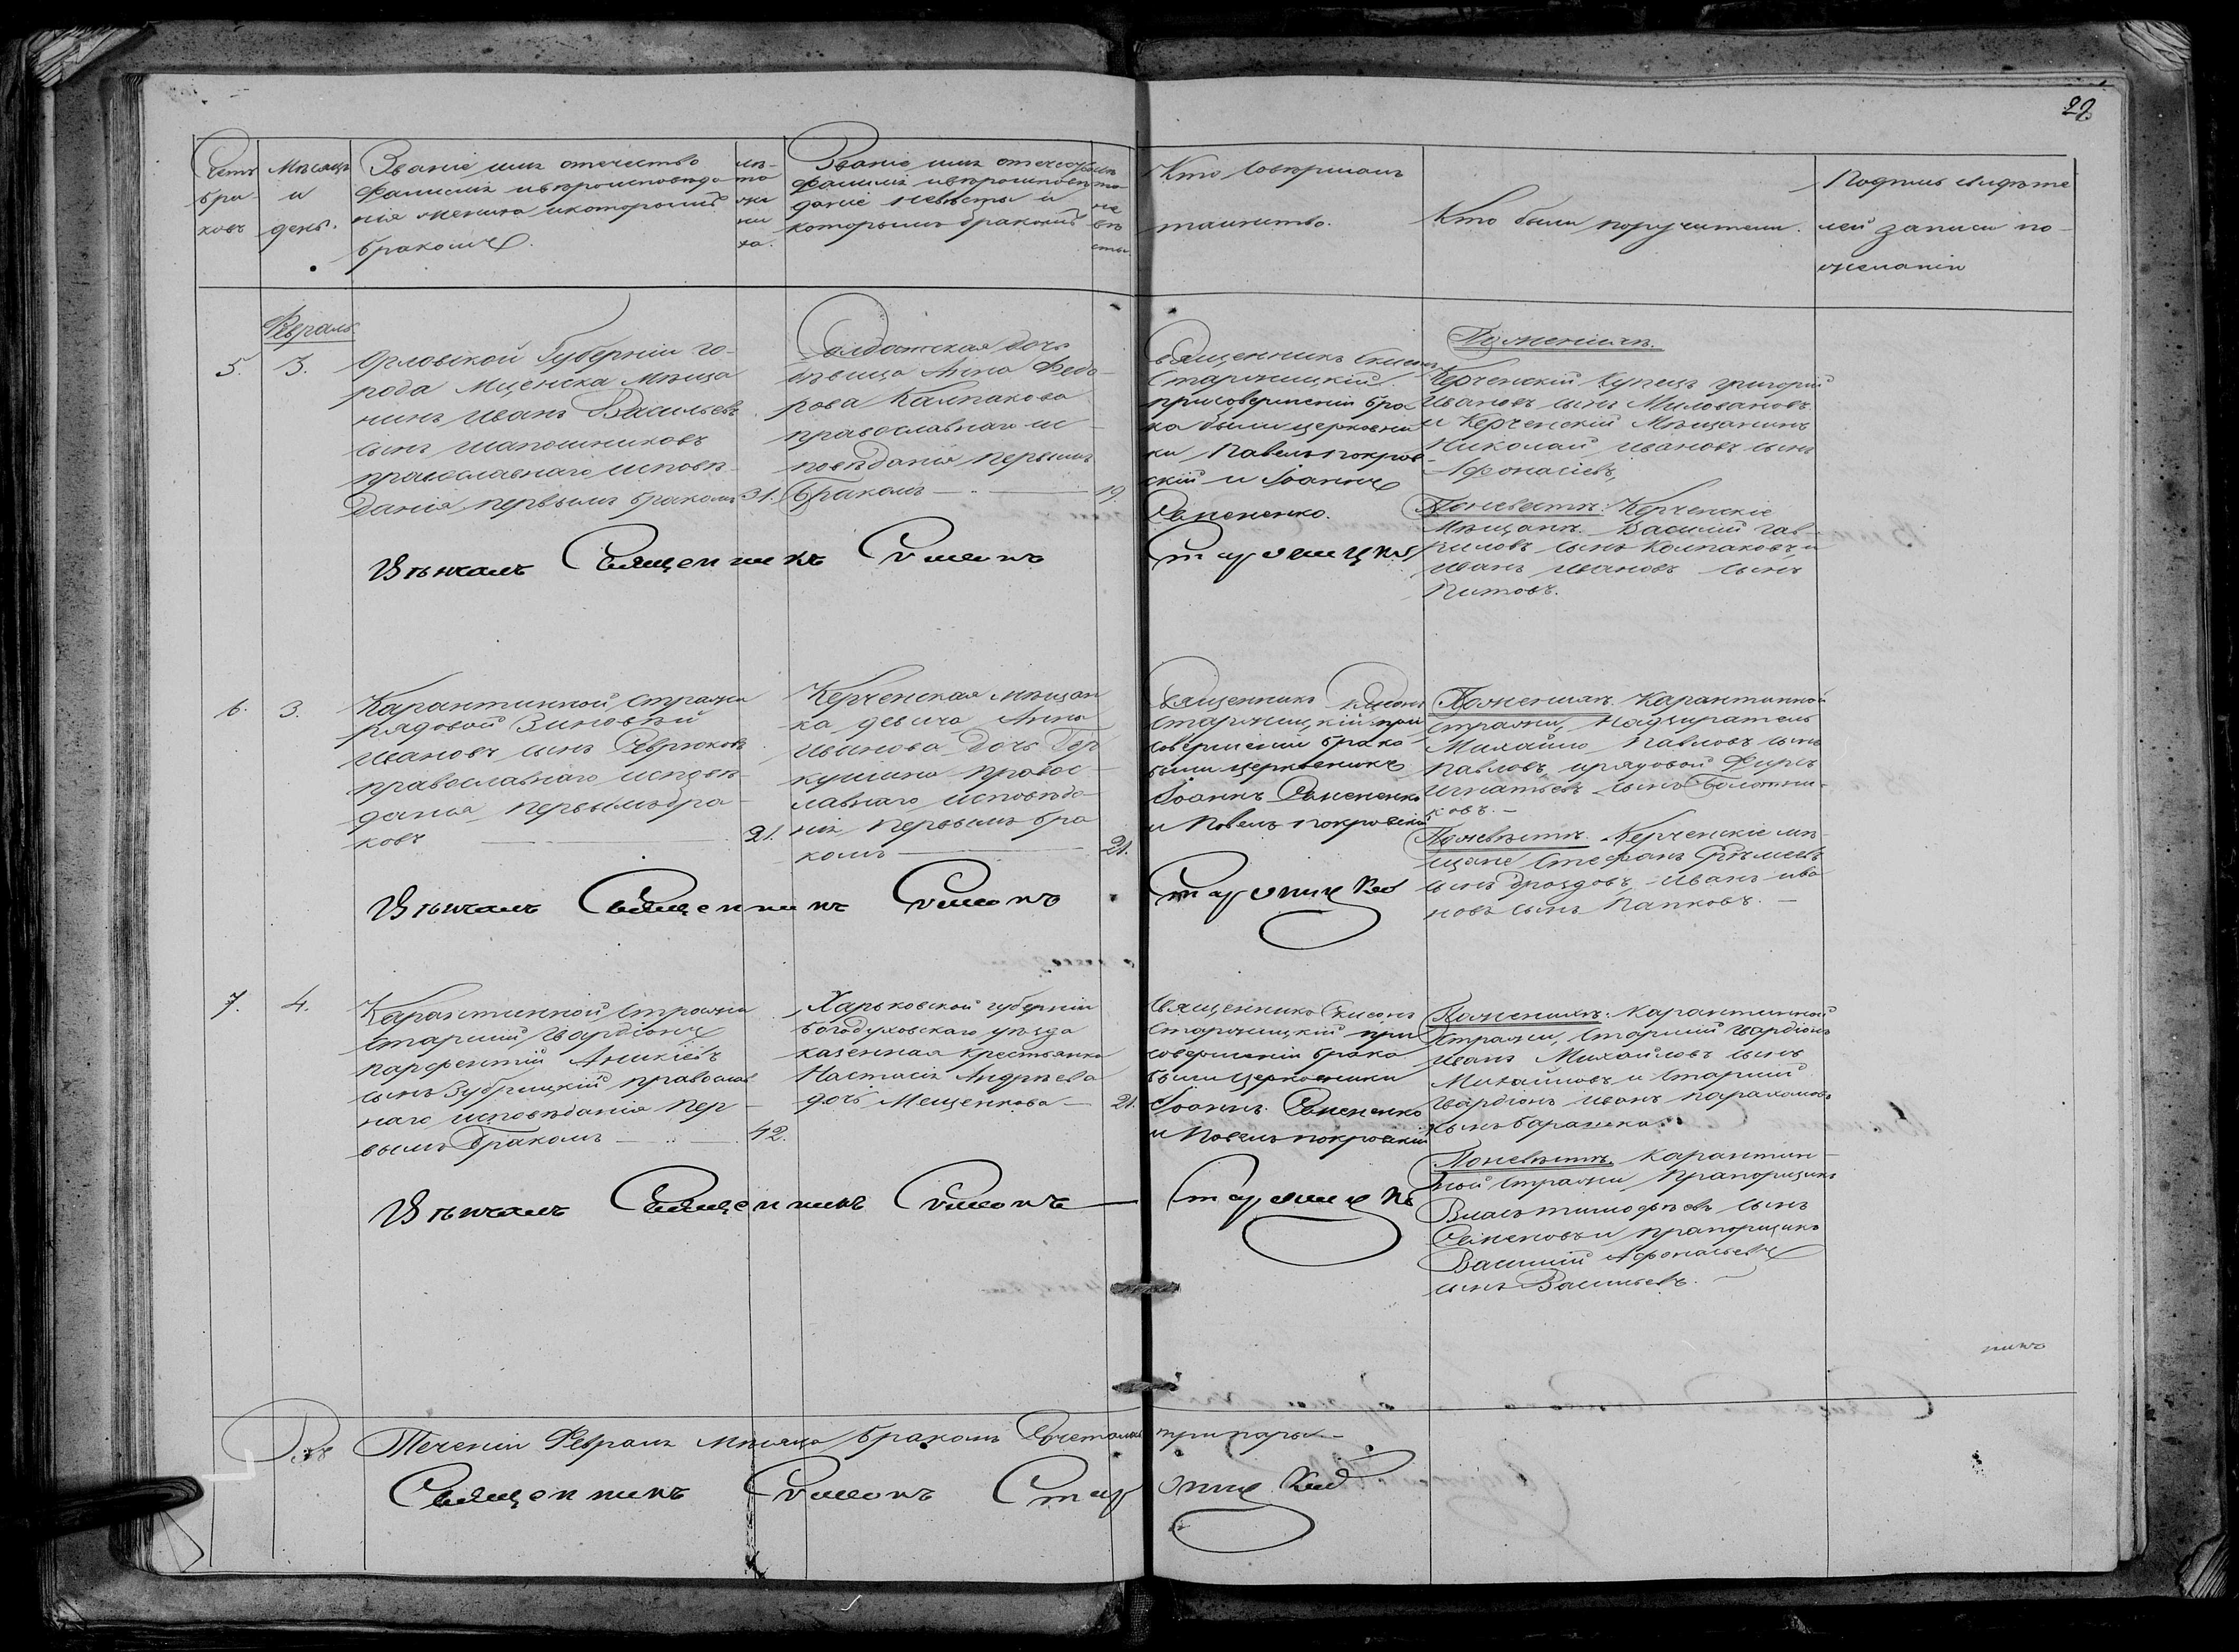 22
Счетъ браковъ
Мѣсяцъ и день.
Званіе имя отечество
фамилія и вѣроисповѣда
нія жениха и которымъ
бракомъ.
лѣ-
та
же
ни
ха.
Званіе имя отечество
фамилія и вѣроисповѣ
даніе невѣсты и
которымъ бракомъ
лѣ
та
не
вѣ
сты
Кто совершалъ
таинство.
Кто были поручители.
Подпись свидѣте
лей записи по
желанію
Февраль
5.
3.
Орловской Губерніи го-
рода Мценска Мѣща
нинъ Иванъ Васильевъ
сынъ Шапошниковъ
православнаго исповѣ-
данія первымъ бракомъ
31.
Солдатская дочь
дѣвица Анна Федо-
рова Калпакова
православнаго ис-
повѣданія первымъ
бракомъ
19.
Священникъ Симеонъ
Старжицкій.
при совершеніи бра-
ка были церковни
ки Павелъ Покров-
скій и Іоаннъ
Семененко.
По женихѣ.
Керченскій Купецъ Григорій
Ивановъ сынъ Миловановъ
и Керченскій Мѣщанинъ
Николай Ивановъ сынъ
Афонасіевъ,
По невѣстѣ: Керченскіе
Мѣщане Василій Гав-
риловъ сынъ Колпаковъ, и
Иванъ Ивановъ сынъ
Титовъ.
Вѣнчалъ Священникъ Симеонъ Старжицкій
6.
3.
Карантинной стражи
рядовой Зиновѣй
Ивановъ сынъ Севрюковъ
православнаго исповѣ-
данія первымъ бра-
ковъ
21.
Керченская мѣщан
ка девица Анна
Иванова дочь
православ-
лавнаго исповѣда-
нія первымъ бра
комъ
21.
Священникъ Симеонъ
Старжицкій при
совершеніи брака
были церковники
Іоаннъ Семененко
и Павелъ Покровскій
По женихѣ. Карантинной
стражи, Надзиратель
Михайло Павловъ сынъ
Павловъ, и рядовой Фирсъ
Игнатьевъ сынъ Болотни-
ковъ.
По невѣстѣ. Керченскіе мѣ-
щане Стефанъ
сынъ Дроздовъ, Иванъ Ива
новъ сынъ Папковъ.
Вѣнчалъ Священникъ Симеонъ Старжицкій
7.
4.
Карантинной Стражи
старшій Гвардіонъ
Парфентій Аникіевъ
сынъ Зубрицкій православ
наго исповѣданія пер-
вымъ бракомъ
42.
Харьковской губерніи
Богодуховскаго уѣзда
казенная крестьянка
Настасія Андрѣева
дочь Мещенкова
21.
Священникъ Симеонъ
Старжицкій при
совершеніи брака
были церковники
Іоаннъ Семененко
и Павелъ Покровскій
По женихѣ: Карантинной
Стражи, Старшій Гвардіонъ
Иванъ Михайловъ сынъ
Михайловъ и Старшій
Гвардіонъ Иванъ Парахомовъ
сынъ Барашека.
По невѣстѣ. Карантин-
ной стражи Прапорщикъ
Власъ Тимофѣевъ сынъ
Семеновъ и прапорщикъ
Василій Афонасьевъ
сынъ Васильевъ.
Вѣнчалъ Священникъ Симеонъ Старжицкій
Въ Теченіи Февраля Мѣсяца бракомъ Сочетались три пары
Священникъ Симеонъ Старжицкій